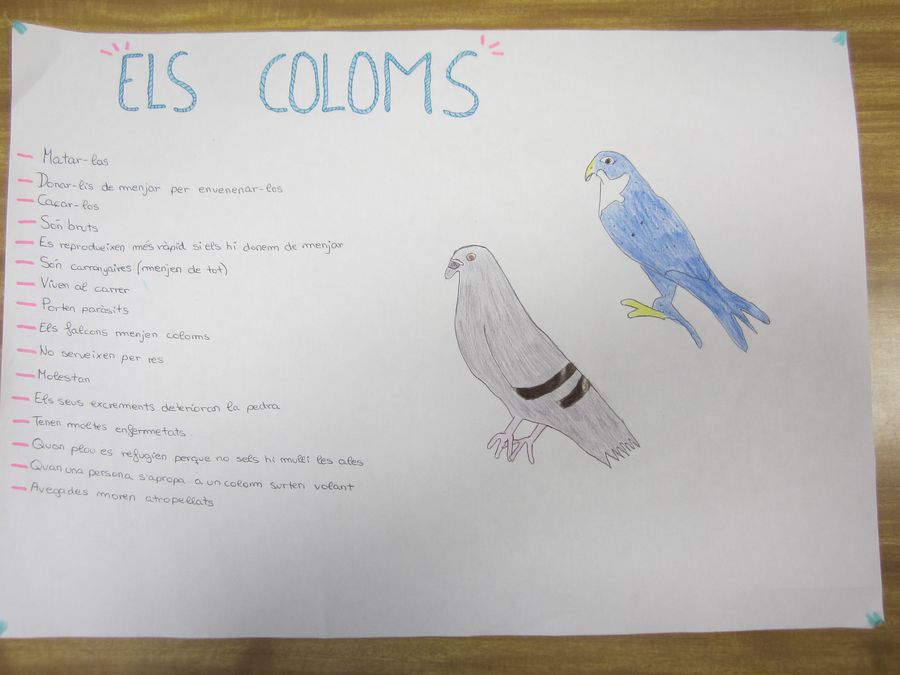 ELS COLOMS
Matar-los
Donar-lis de menjar per envenenar-los
Caçar-los
Són bruts
Es reprodueixen més ràpid si els hi donem de menjar
Són carronyaires (menjen de tot)
Viven al carrer
Porten paràsits
Els falcons menjen coloms
No serveixen per res
Molestan
Els seus excrements deterioran la pedra
Tenen moltes enfermetats
Quan plou es refugien perque no sels hi mulli les ales
Quan una persona s'apropa a un colom surten volant
Avegades moren atropellats